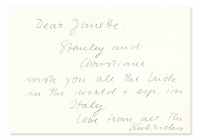 Dear Janette,
Stanley and
Christiane
wish you all the luck
in the world & esp. in
Italy
Love from all the
Kubricks